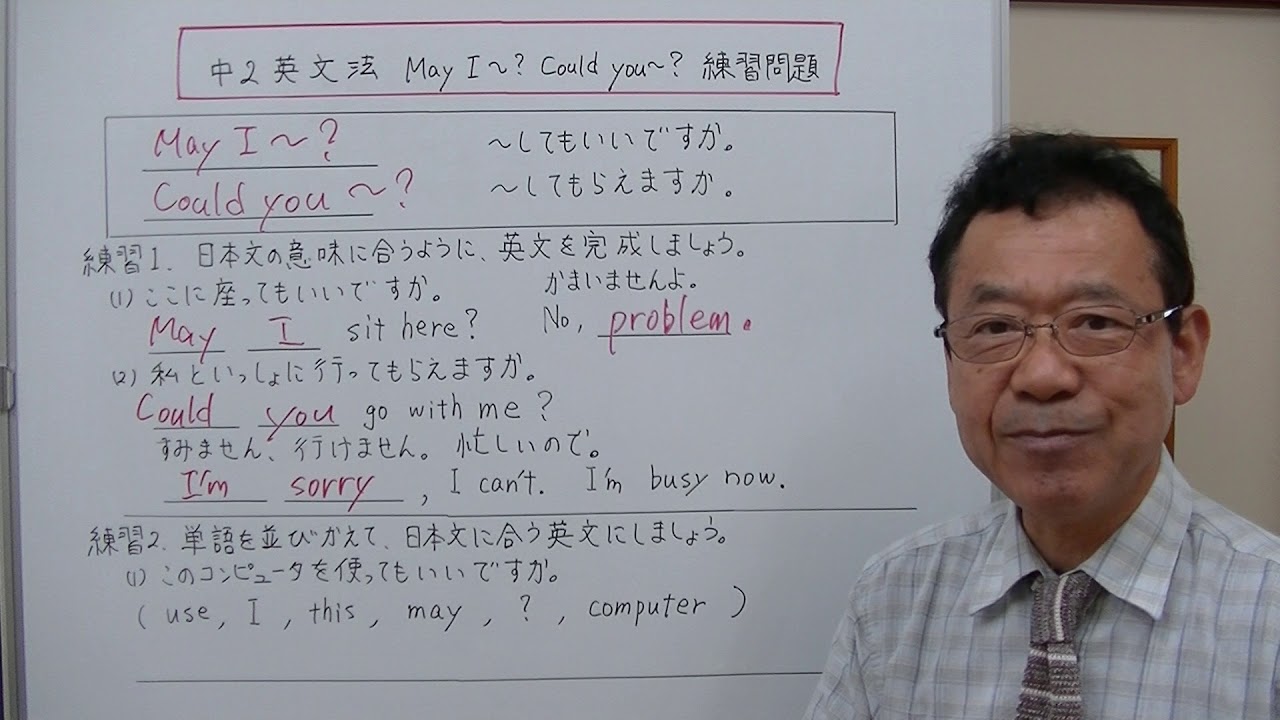 中2英文法 May I～? Could you～? 練習問題
May I～? ～してもいいですか。
Could you～? ～してもらえますか。
練習1. 日本文の意味に合うように、英文を完成しましょう。
(1) ここに座ってもいいですか。 かまいませんよ。
May I sit here? No, problem.
(2) 私といっしょに行ってもらえますか。
Could you go with me?
すみません、行けません。忙しいので。
I'm sorry, I can't. I'm busy now.
練習2. 単語を並びかえて、日本文に合う英文にしましょう。
(1) このコンピュータを使ってもいいですか。
( use, I, this, may, ?, computer )